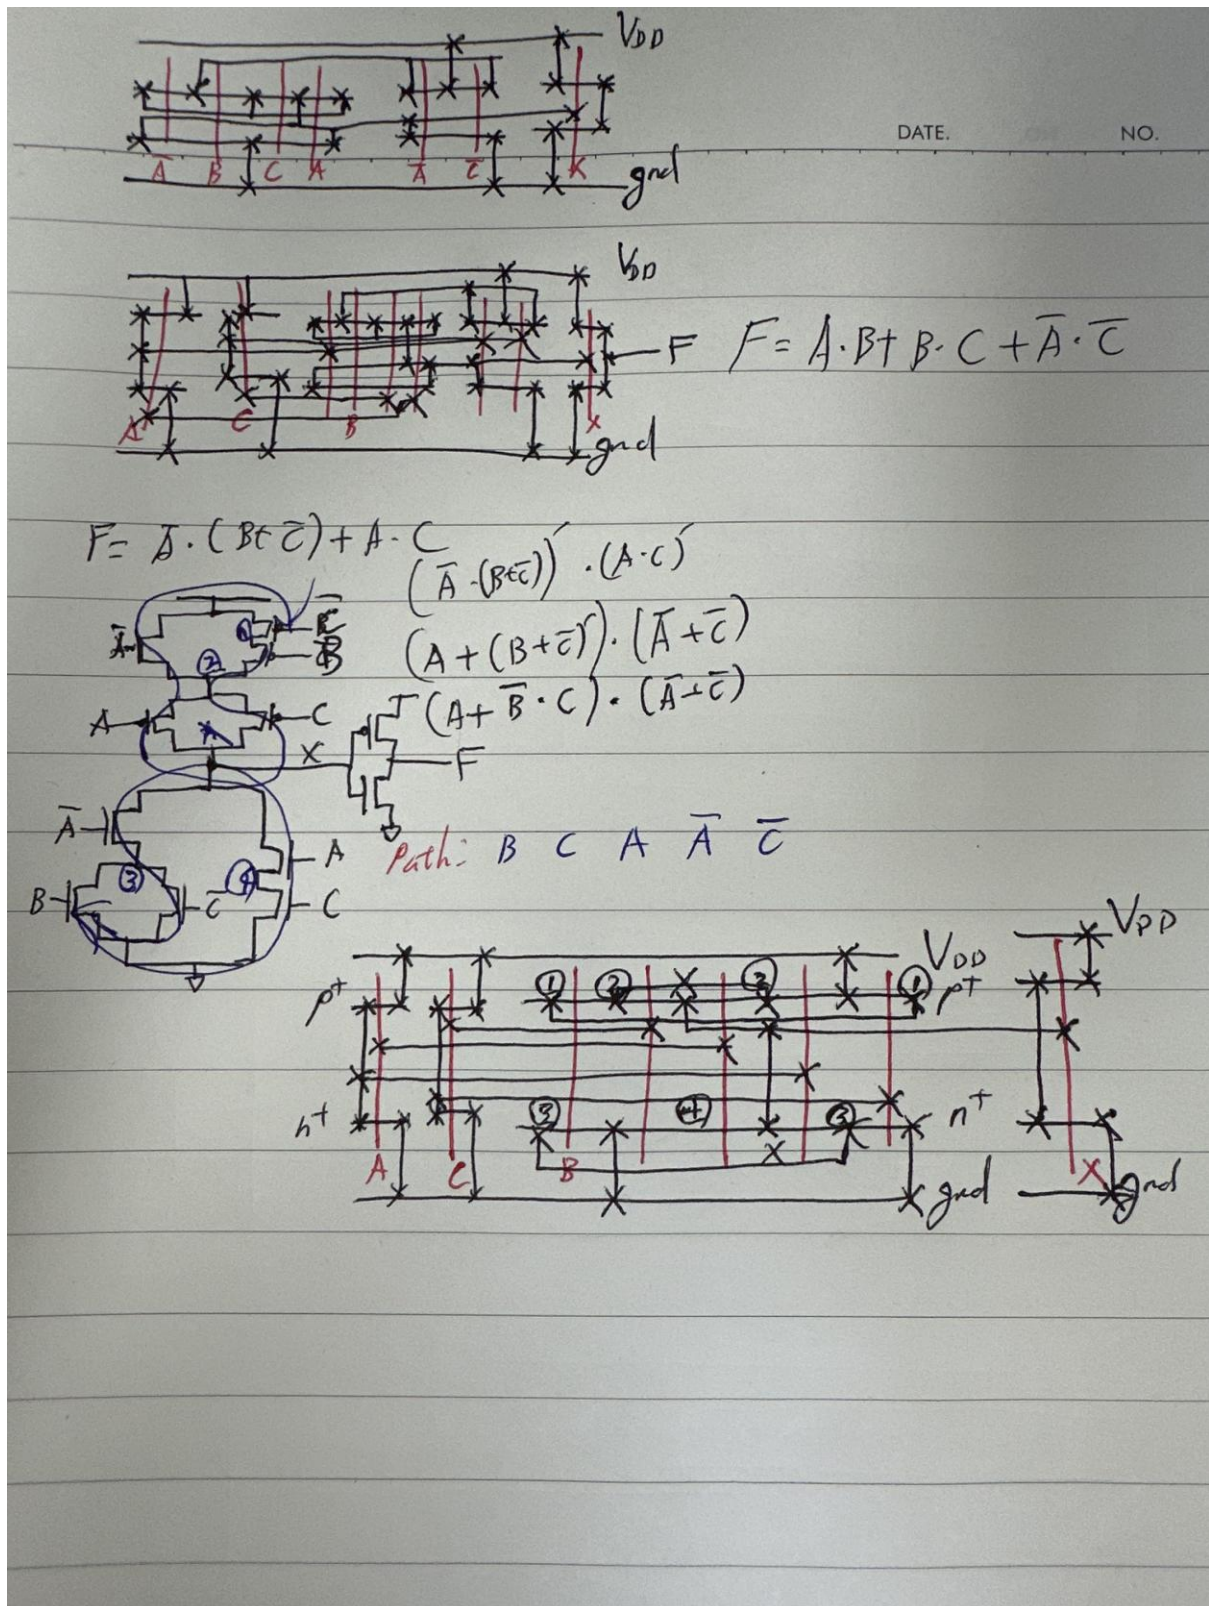 VDD
DATE. NO.
A̅ B C A A̅ C̅ X
gnd
VDD
F F = A·B + B·C + A̅·C̅
A C B X
gnd
F = A̅·(B+C̅) + A·C
(A̅·(B+C̅))′·(A·C)′
A̅ ① C̅
② B̅
(A+(B+C̅)′)·(A̅+C̅)
A C
(A+B̅·C)·(A̅+C̅)
X F
A̅ A Path: B C A A̅ C̅
B ③ C̅ ④ C
VDD VDD
p+ ① ② X ② ① p+
n+ ③ ④ ③ n+
A C B X X
gnd gnd